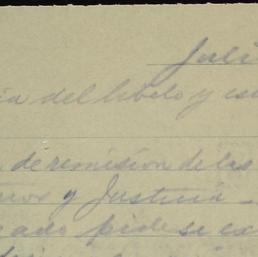 Juli
ia del libelo y es
de remision de las
y Justicia
ado pide se ex